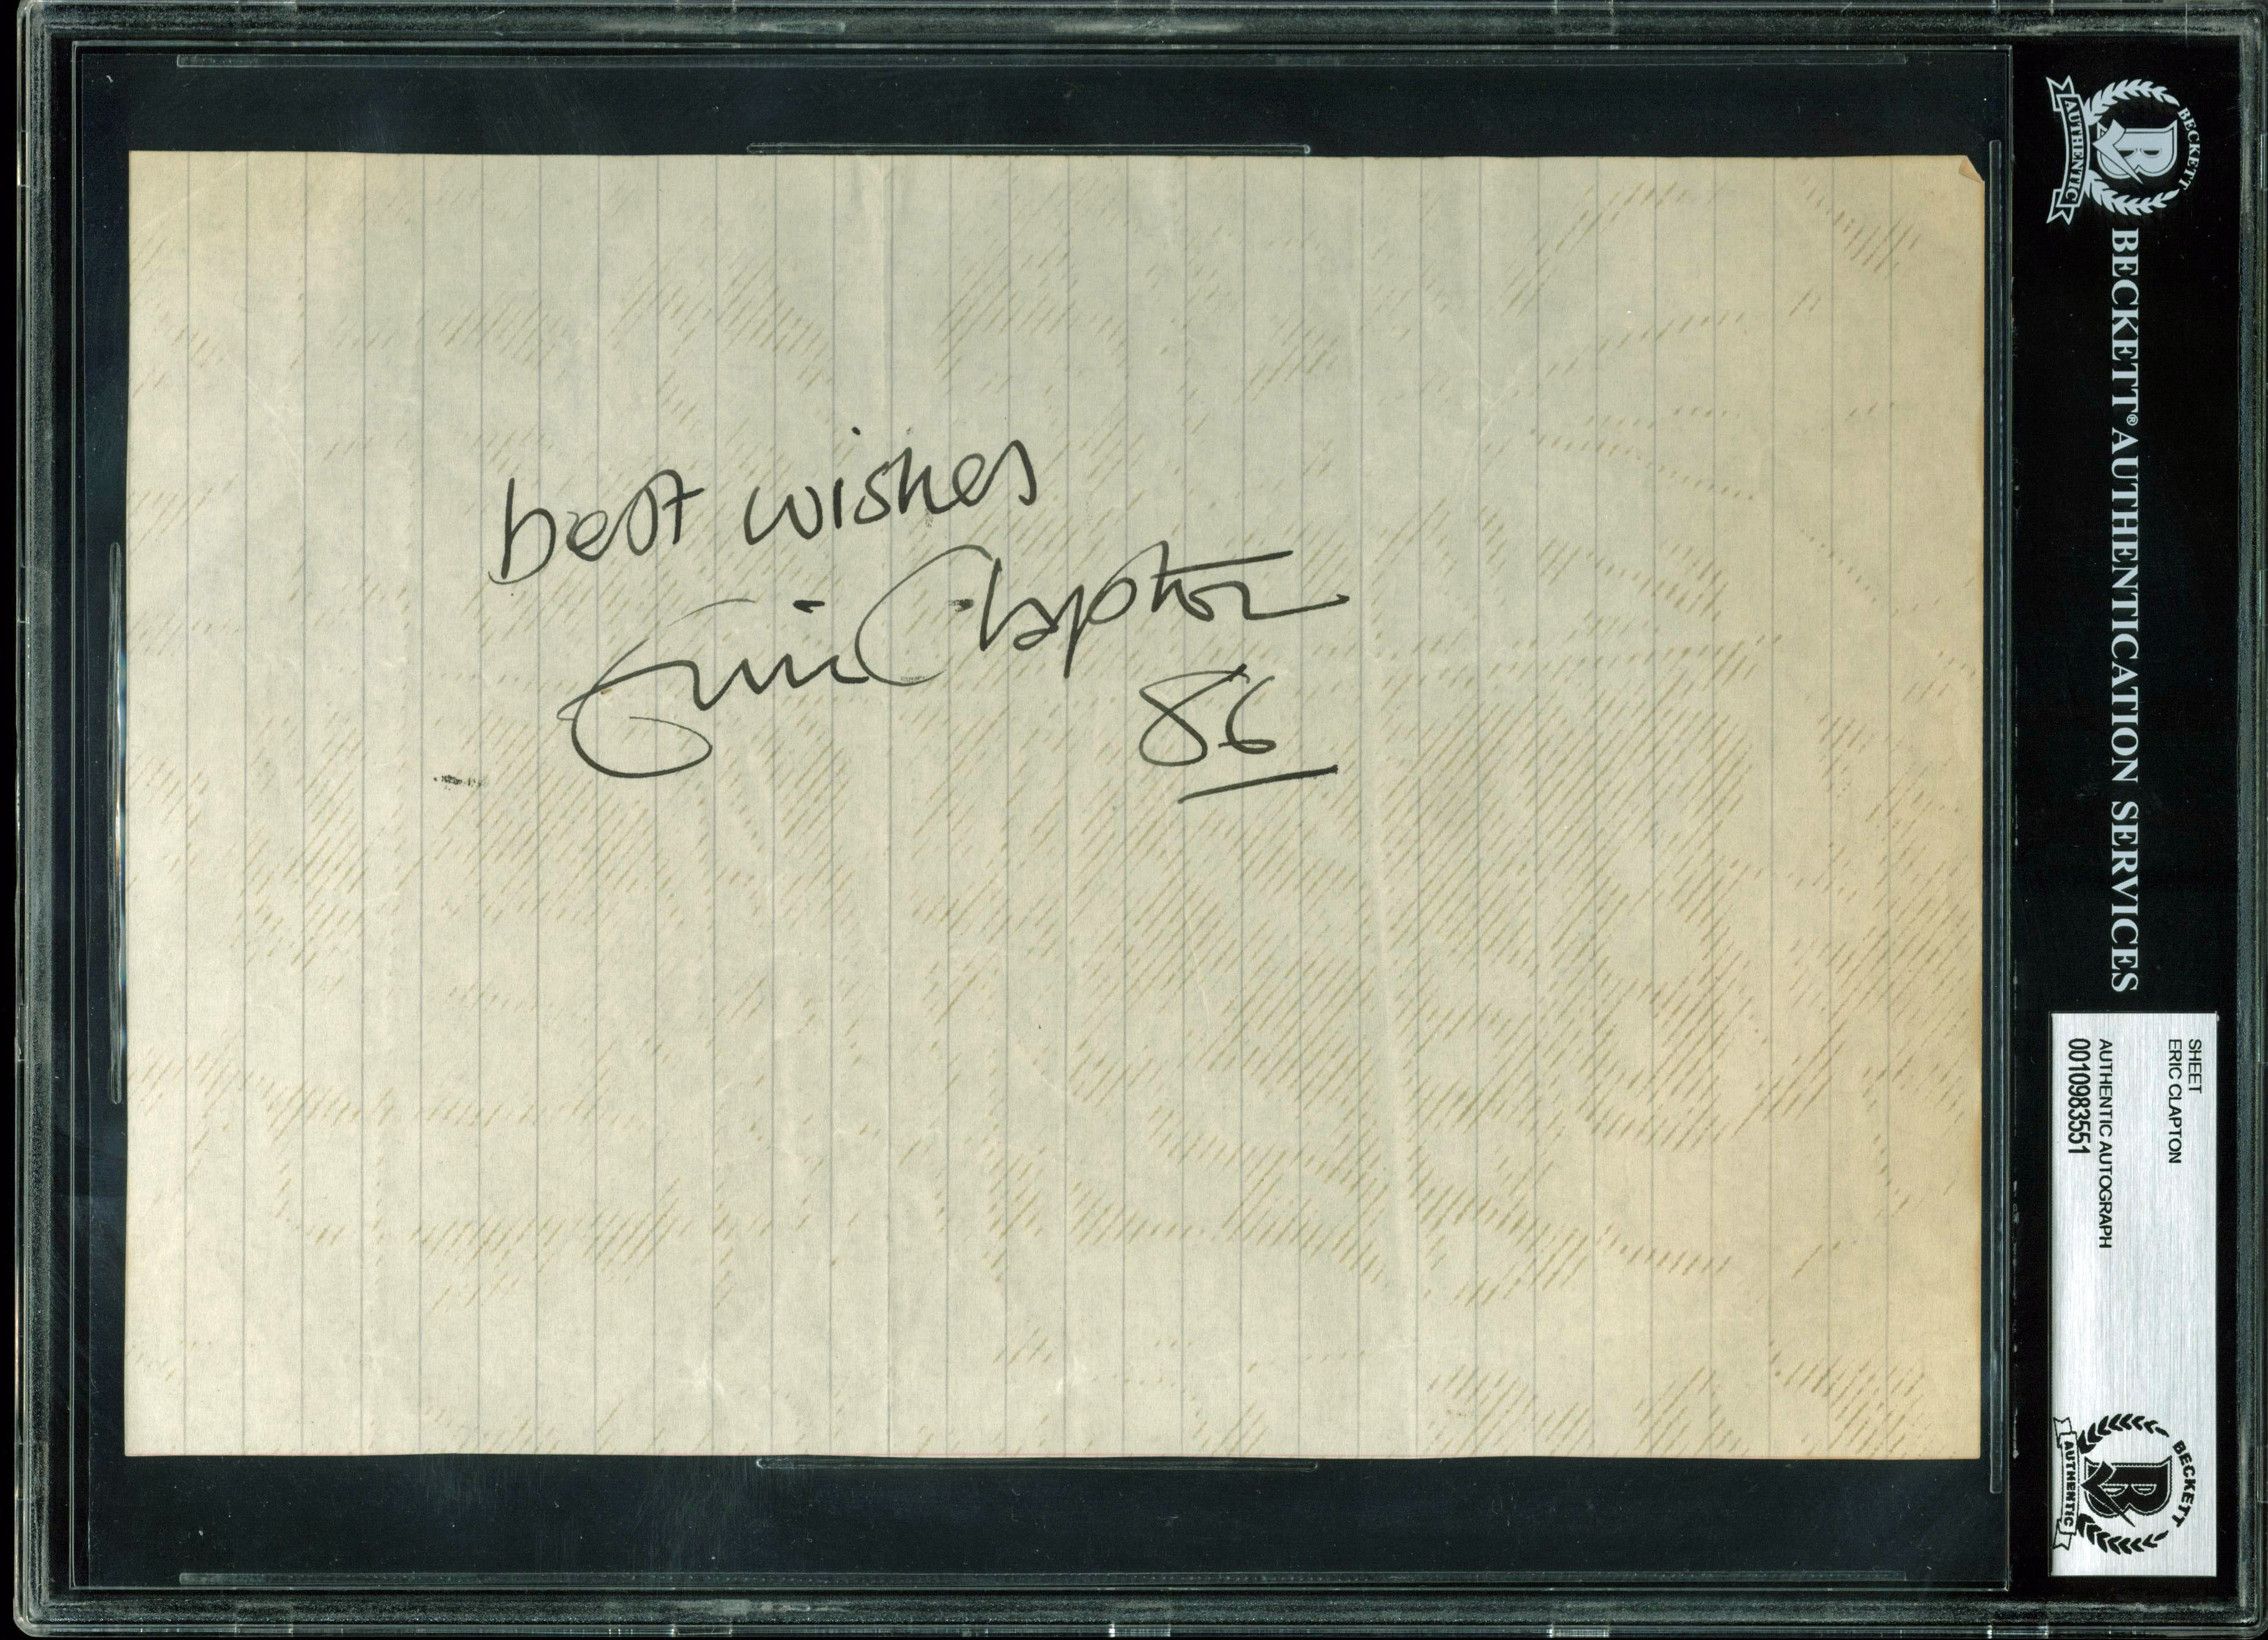 best wishes
Eric Clapton
86
BECKETT
AUTHENTIC
BECKETT® AUTHENTICATION SERVICES
SHEET
ERIC CLAPTON
AUTHENTIC AUTOGRAPH
0010983551
BECKETT
AUTHENTIC